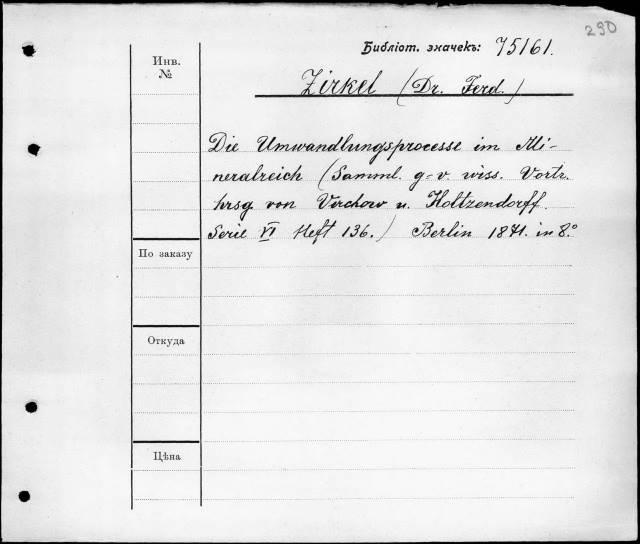 290
Библіот. значекъ: 75161.
Инв.
№
Zirkel (Dr. Ferd.)
Die Umwandlungsprocesse im Mi-
neralreich (Samml. g-v. wiss. Vortr.
hrsg von Virchow u. Holtzendorff.
Serie VI Heft 136.) Berlin 1871. in 8.°
По заказу
Откуда
Цѣна